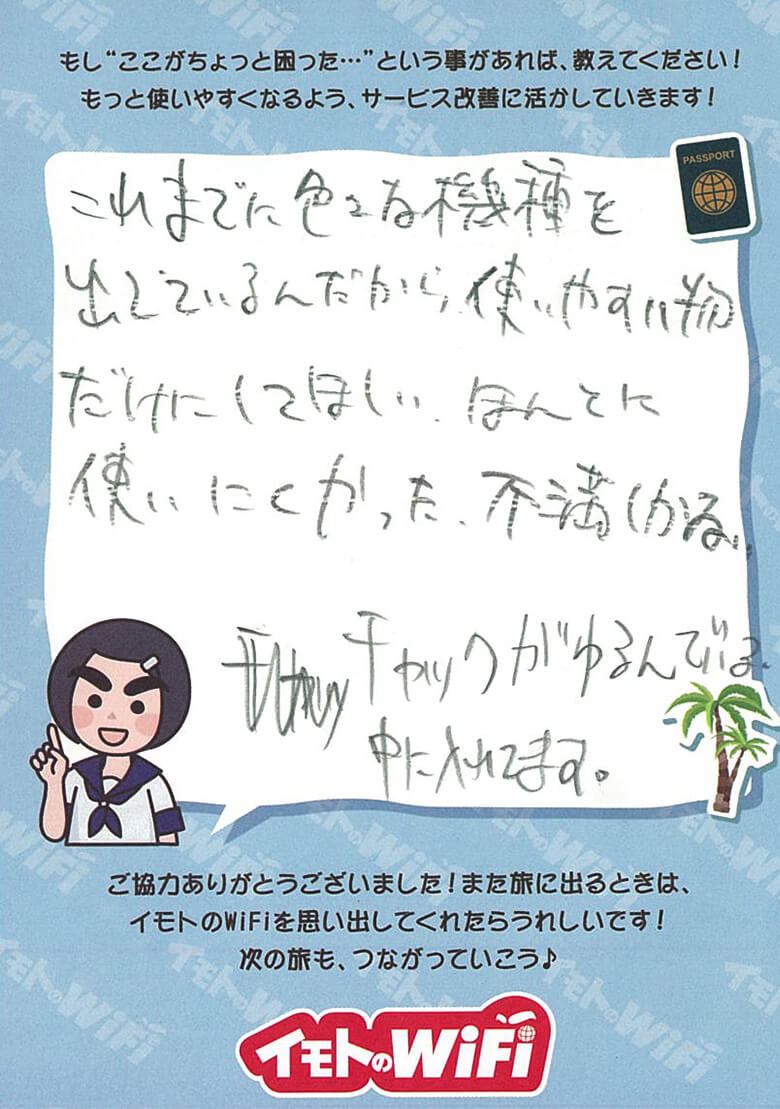 もし“ここがちょっと困った…”という事があれば、教えてください！
もっと使いやすくなるよう、サービス改善に活かしていきます！
PASSPORT
これまでに色々な機種を
出しているんだから、使いやすい物
だけにしてほしい、ほんとに
使いにくかった、不満しかない、
チャックがゆるんでいる、
中に入れてます。
ご協力ありがとうございました！また旅に出るときは、
イモトのWiFiを思い出してくれたらうれしいです！
次の旅も、つながっていこう♪
イモトのWiFi